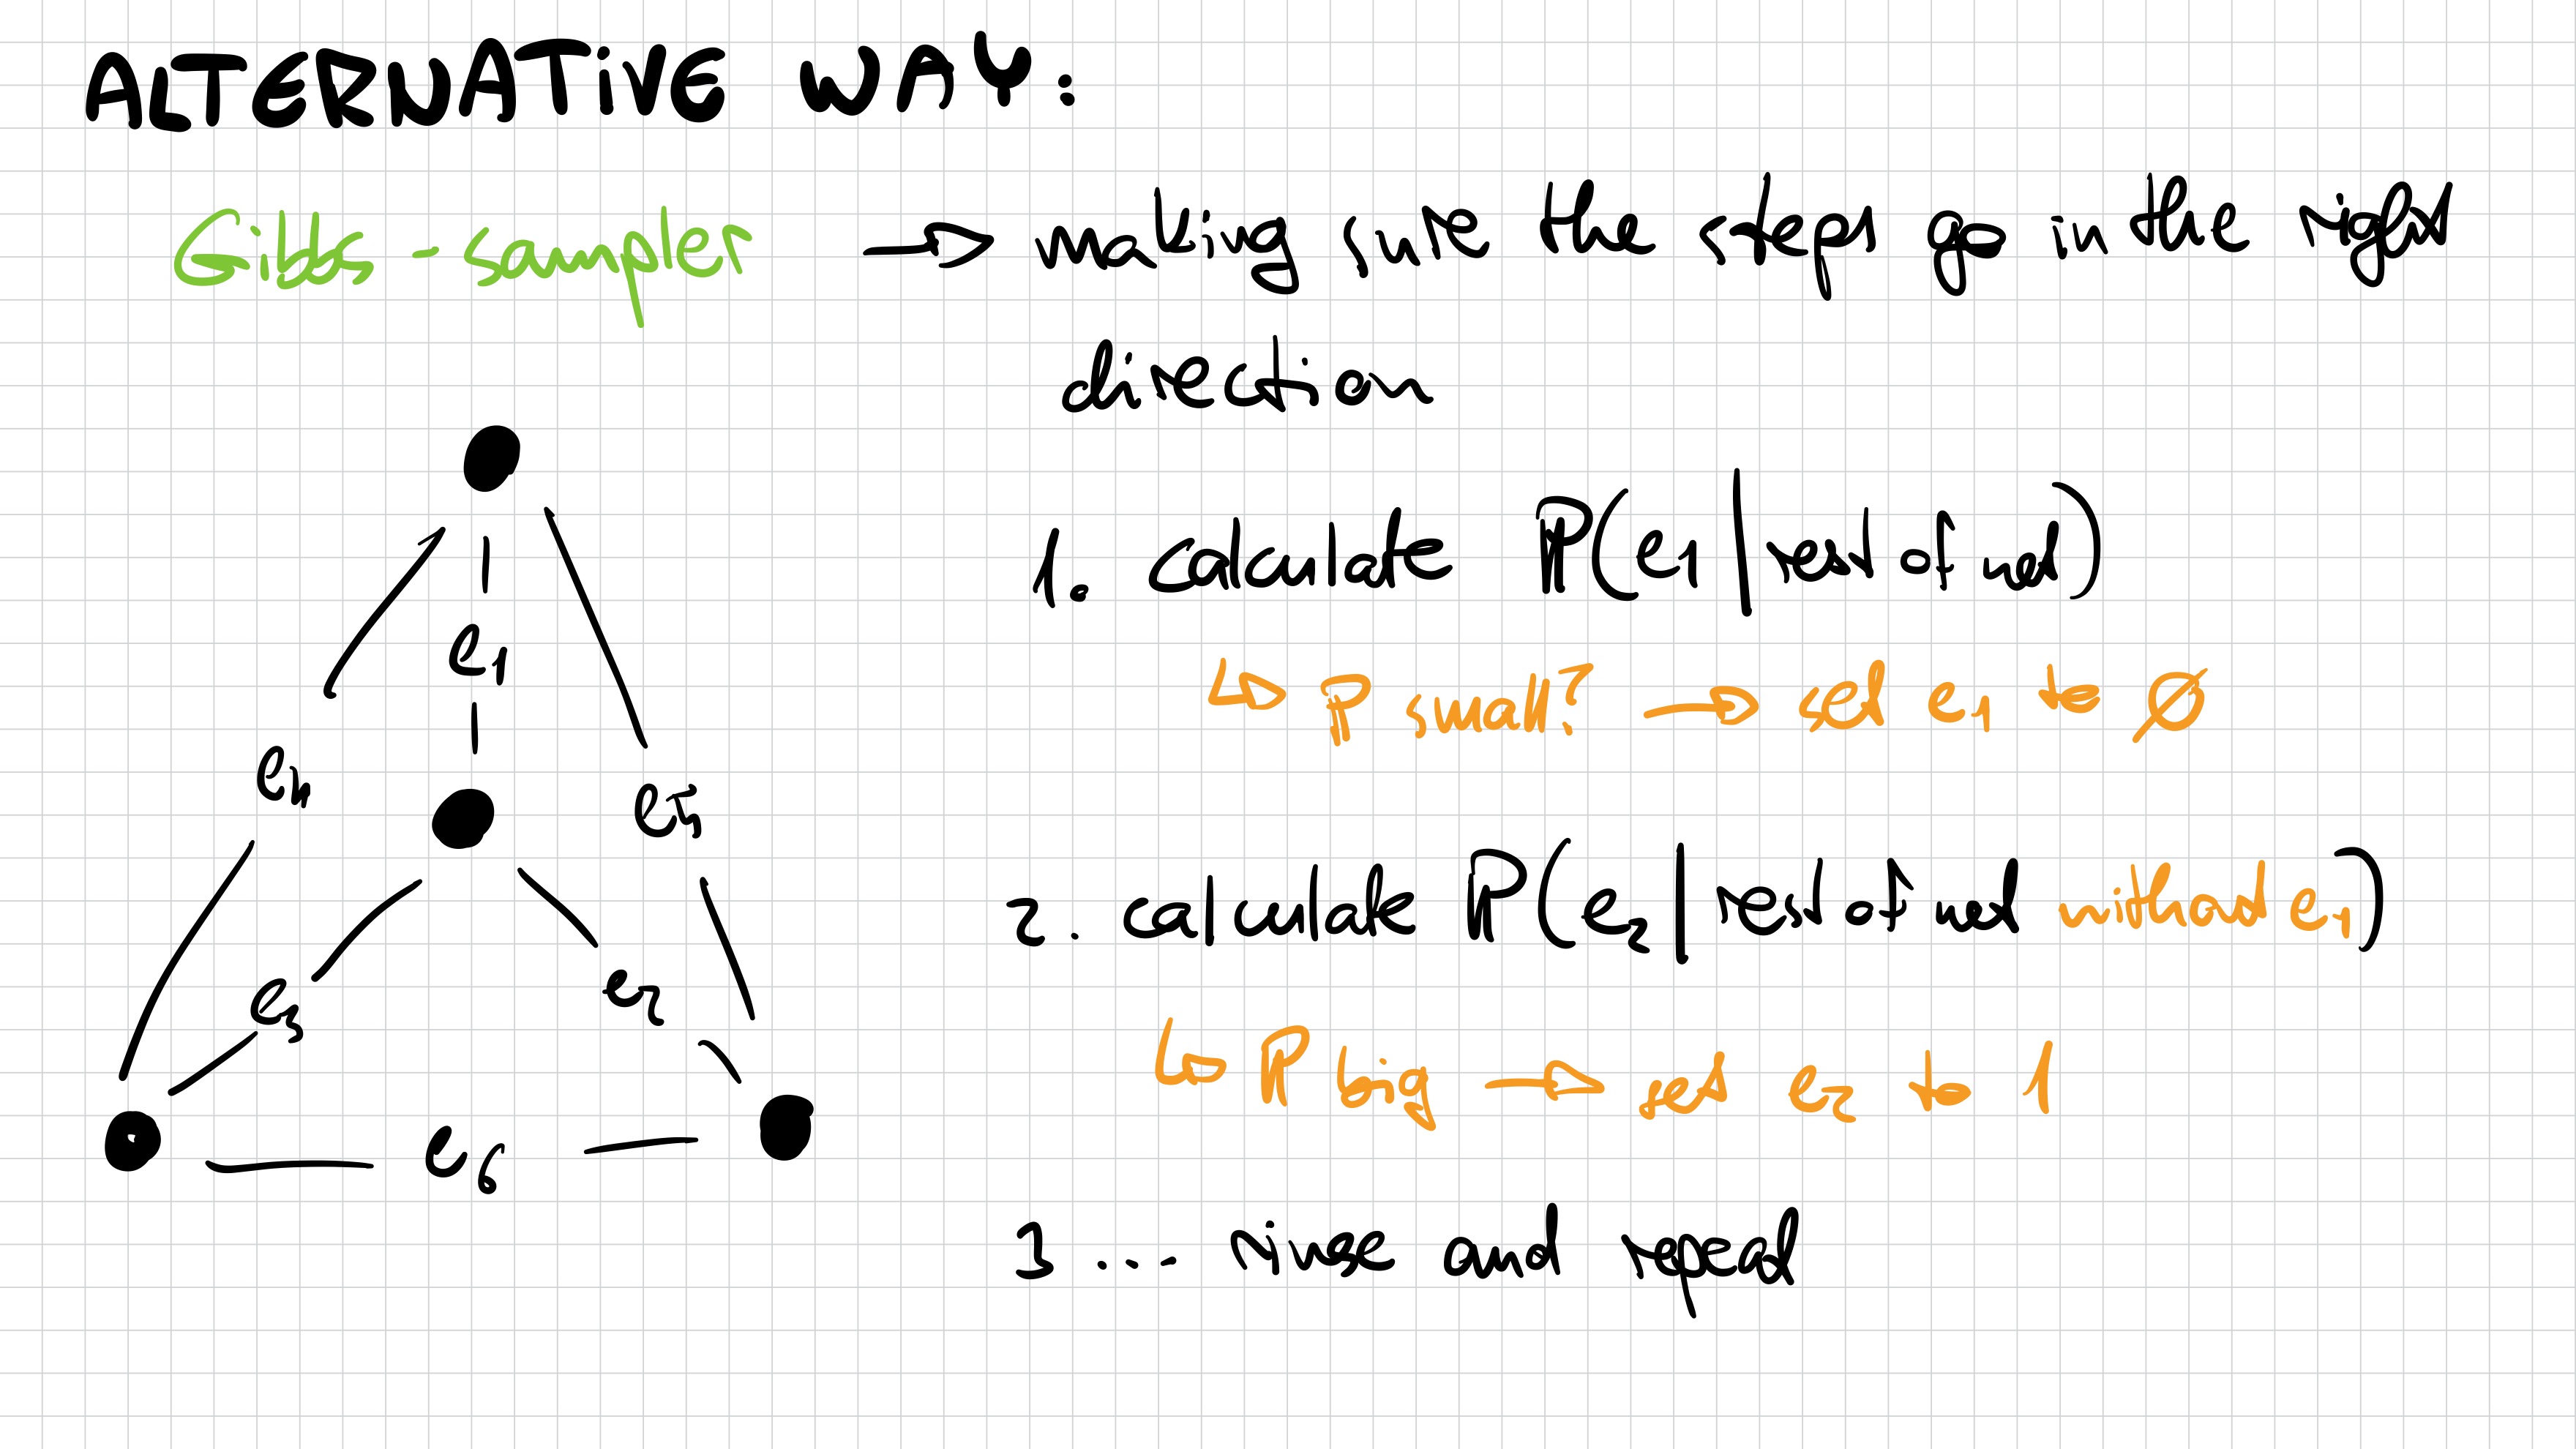 ALTERNATIVE WAY:
Gibbs-sampler → making sure the steps go in the right
direction
1. calculate P(e1 | rest of net)
↳ P small? → set e1 to 0
2. calculate P(e2 | rest of net without e1)
↳ P big → set e2 to 1
3 ... rinse and repeat
e1
e4
e5
e3
e2
e6